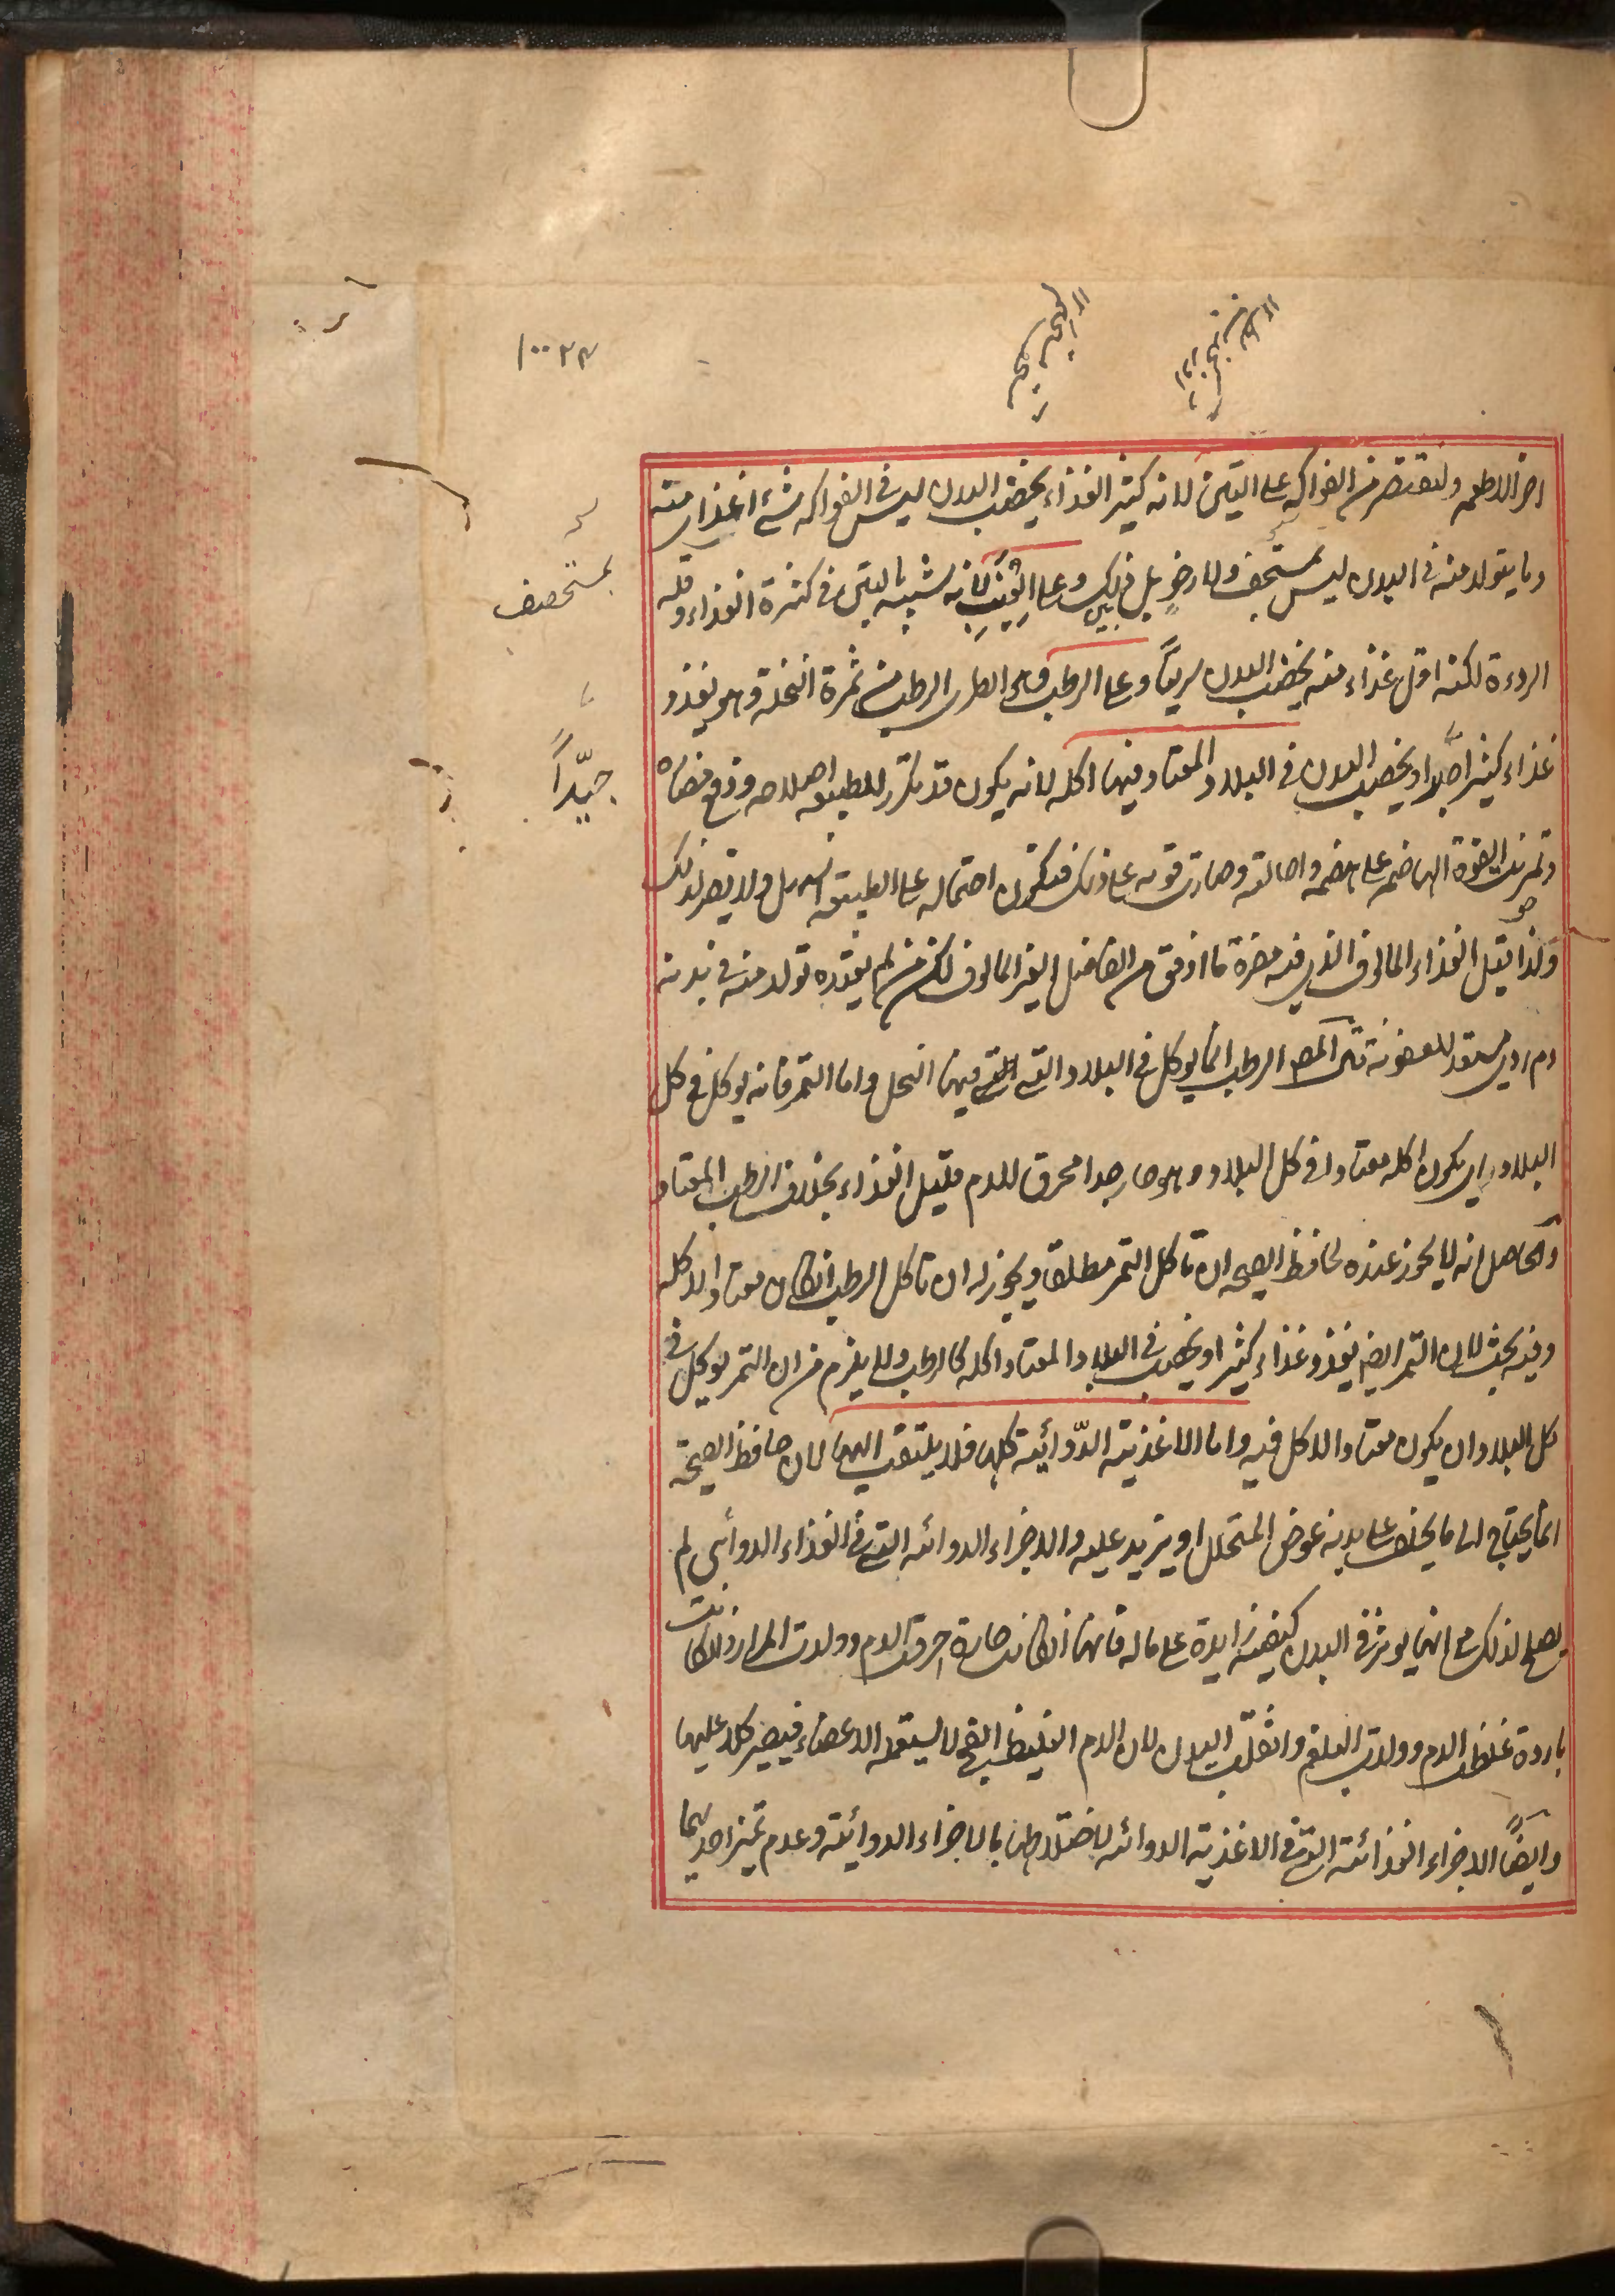 ١٠٠٢٣
اخر الاطعمه وليقتصر من الفواكه على التين لانه كثير الغذاء يخصب البدن ليس في الفواكه شئ اغذى منه
وما يتولد منه في البدن ليس بمستحف ولا رخو بل بين ذلك وعلى العنب لانه شبيه بالتين في كثرة الغذاء وقلة
بمستحصف
الرداءة لكنه اقل غذاء منه يخصب البدن سريعاً وعلى الرطب وهو الطرى الرطب من ثمرة النخلة وهو يغذو
غذاء كثيرا جيدا ويخصب البدن في البلاد المعتاد فيها اكله لانه يكون قد تكرر للطبيعة اصلاحه ودفع مضاره
جيّداً
وتمرنت القوة الهاضمة على هضمه واحالته وصارت قوته على ذلك فيكون احتماله على الطبيعة اسهل ولا يضر لذلك
ولذا قيل الغذاء المالوف الذى فيه مضرة ما اوفق من الفاضل الغير المالوف لكن من لم يعتده تولد منه في بدنه
دم ردي مستعد للعفونة الرطب انما يوكل في البلاد التي فيها النخل واما التمر فانه يوكل في كل
البلاد اى يكون اكله معتادا في كل البلاد وهو حار جدا محرق للدم قليل الغذاء بخلاف الرطب المعتاد
والحاصل انه لا يجوز عنده لحافظ الصحه ان تاكل التمر مطلقا ويجوز له ان تاكل الرطب ان كان معتادا لاكله
وفيه بحث لان التمر ايضا يغذو غذاء كثيرا ويخصب في البلاد المعتاد اكله كالرطب ولا يلزم من ان التمر يوكل في
كل البلاد ان يكون معتاد الاكل فيه واما الاغذية الدّوائية كلها فلا يلتفت اليها لان حافظ الصحة
انما يحتاج الى ما يخلف على بدنه عوض المتحلل او يزيد عليه والاجزاء الدوائيه التي في الغذاء الدوائي لم
يصلح لذلك مع انها يوثر في البدن كيفية زايدة على ماله فانها ان كانت حارة احرقت الدم وولدت المرار وان كانت
باردة غلظت الدم وولدت البلغم واثقلت البدن لان الدم الغليظ الفج لا يستعمله الاعضاء فيصير كلا عليها
وايضاً الاجزاء الغذائية التي في الاغذية الدوائيه لاختلاطها بالاجزاء الدوائية وعدم تميز احديهما